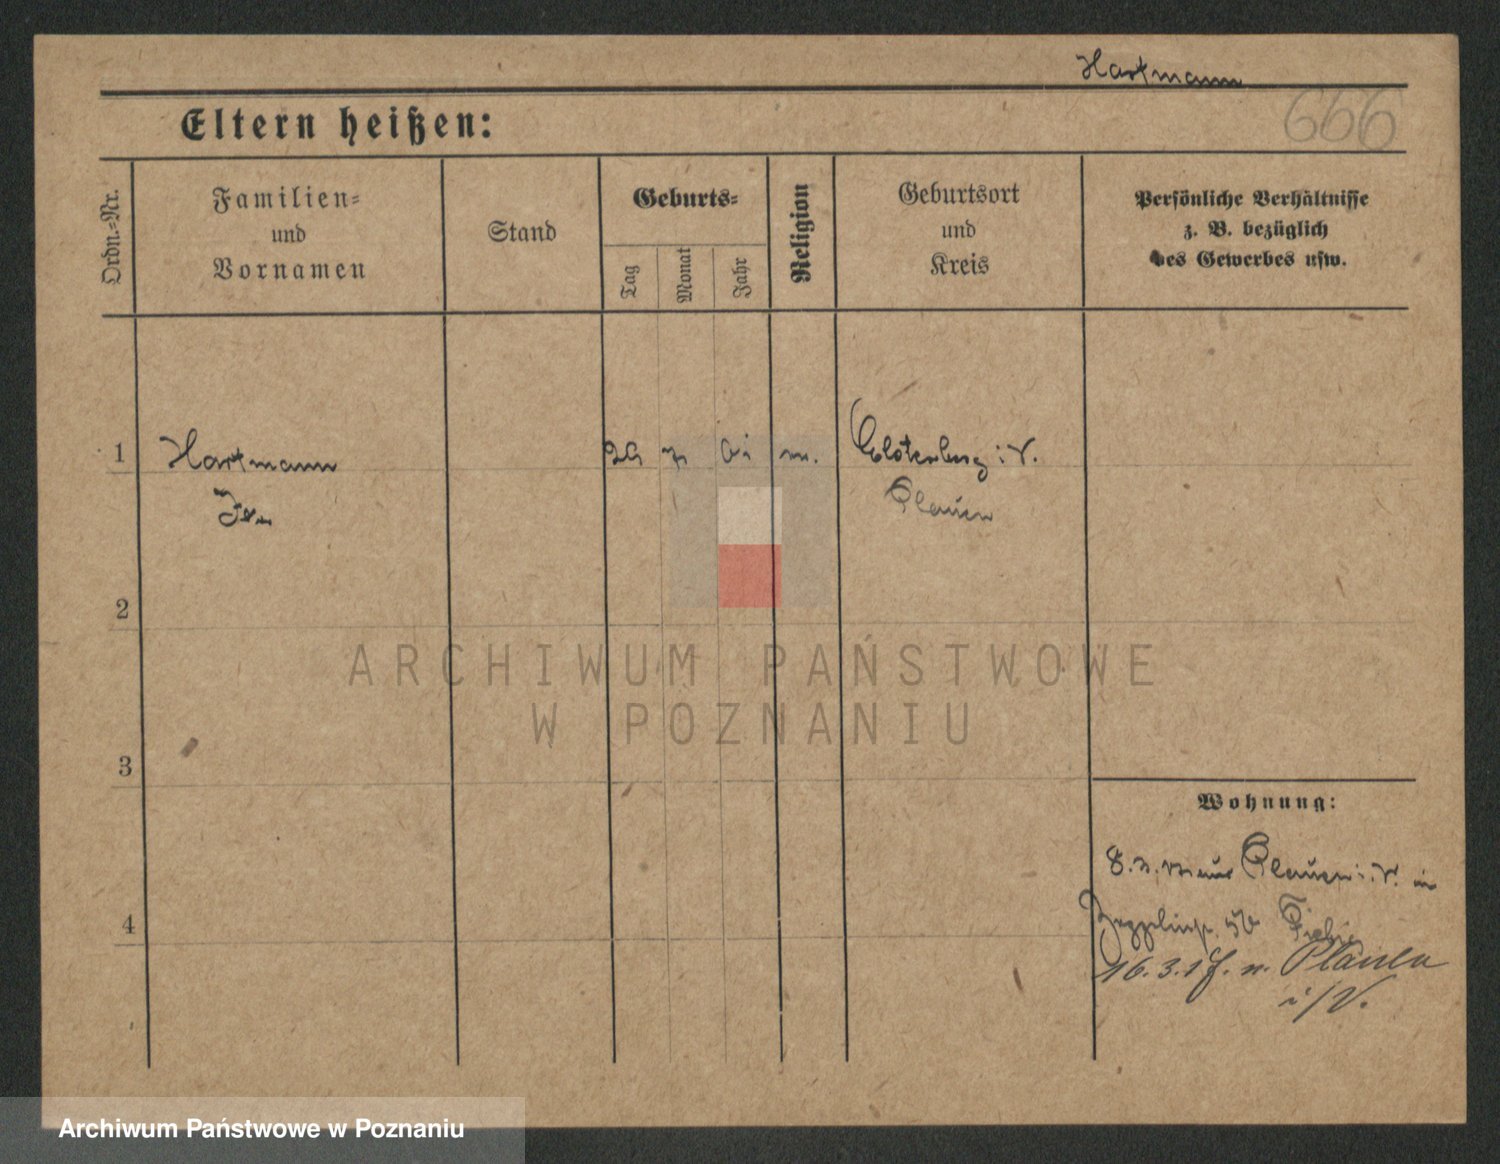 Hartmann
666
Eltern heißen:
Ordn.-Nr.
Familien-
und
Vornamen
Stand
Geburts-
Tag
Monat
Jahr
Religion
Geburtsort
und
Kreis
Persönliche Verhältnisse
z. B. bezüglich
des Gewerbes usw.
1
Hartmann
Elsterberg i. V.
Plauen
2
ARCHIWUM PAŃSTWOWE
W POZNANIU
3
Wohnung:
Plauen i. V. in
Zeppelinstr.
4
16.3.1 f. n. Plauen
i/V.
Archiwum Państwowe w Poznaniu